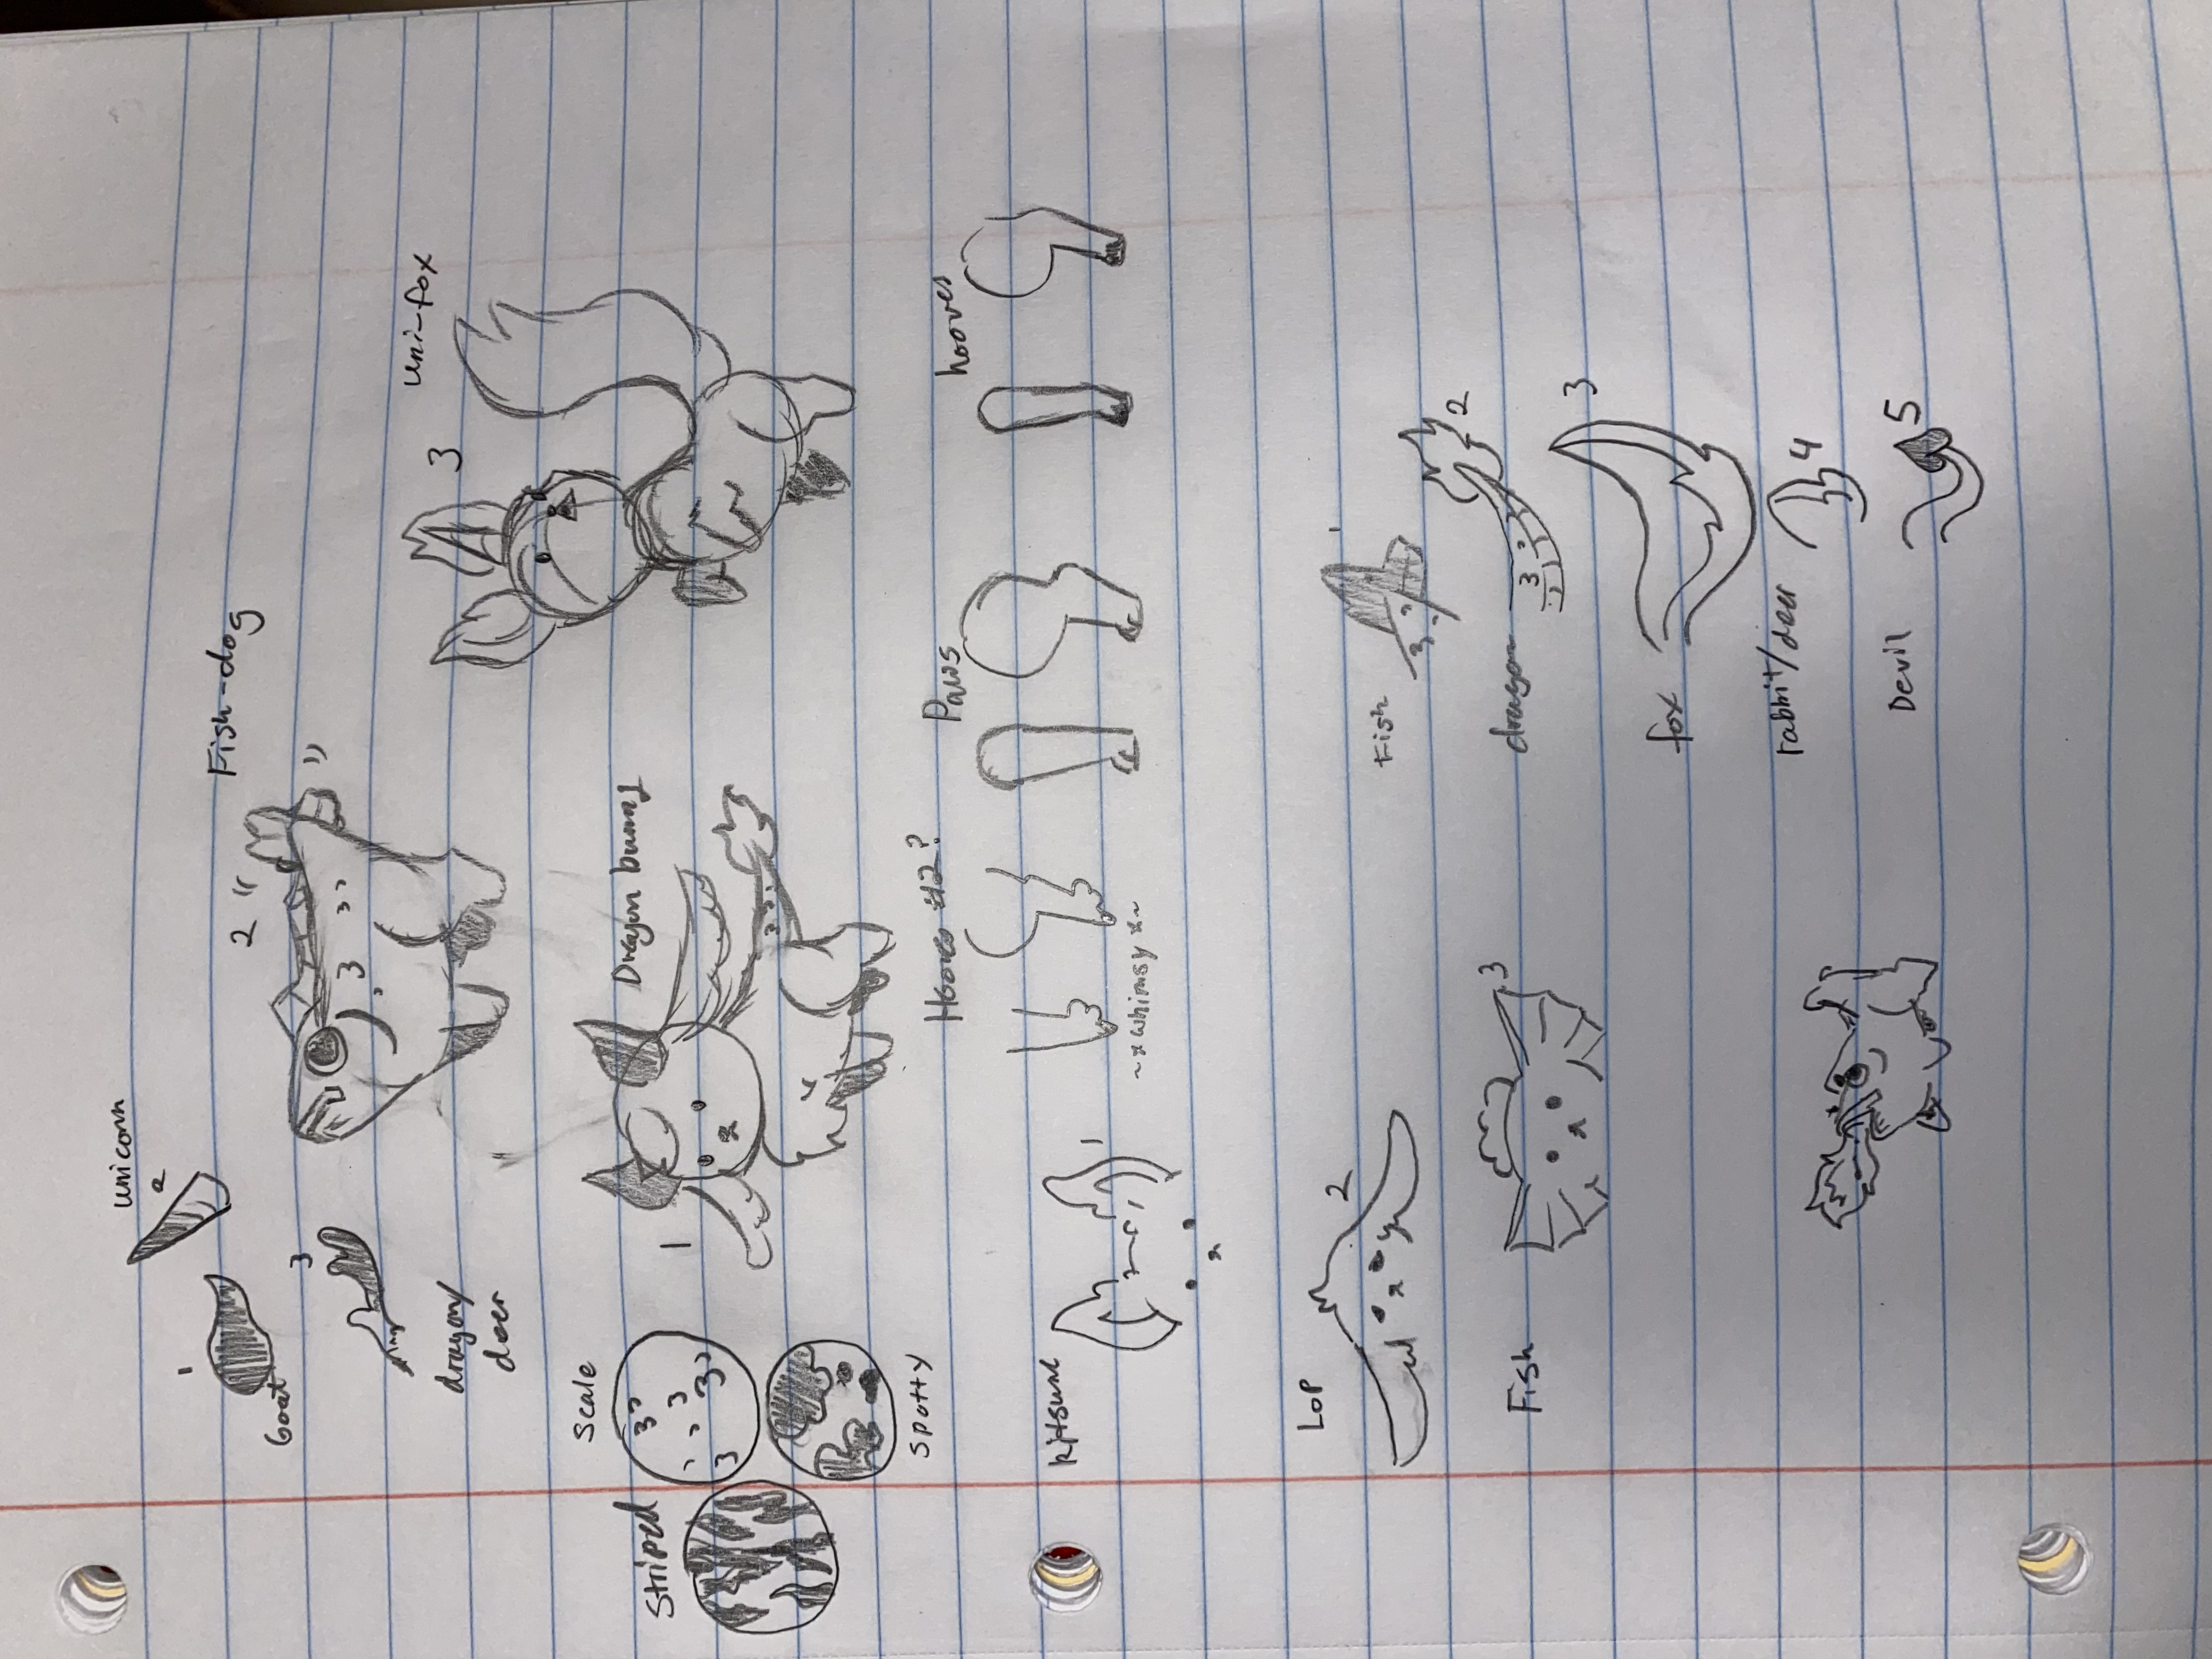 unicorn
2
1
Goat
3
dragon/
deer
Fish-dog
2 "
"
3
uni-fox
3
Scale
Striped
Spotty
Dragon bunny
1
Hooves #2?
~*whimsy*~
Paws
hooves
kitsune
1
Lop
2
Fish
3
Fish
1
dragon
2
fox
3
rabbit/deer
4
Devil
5